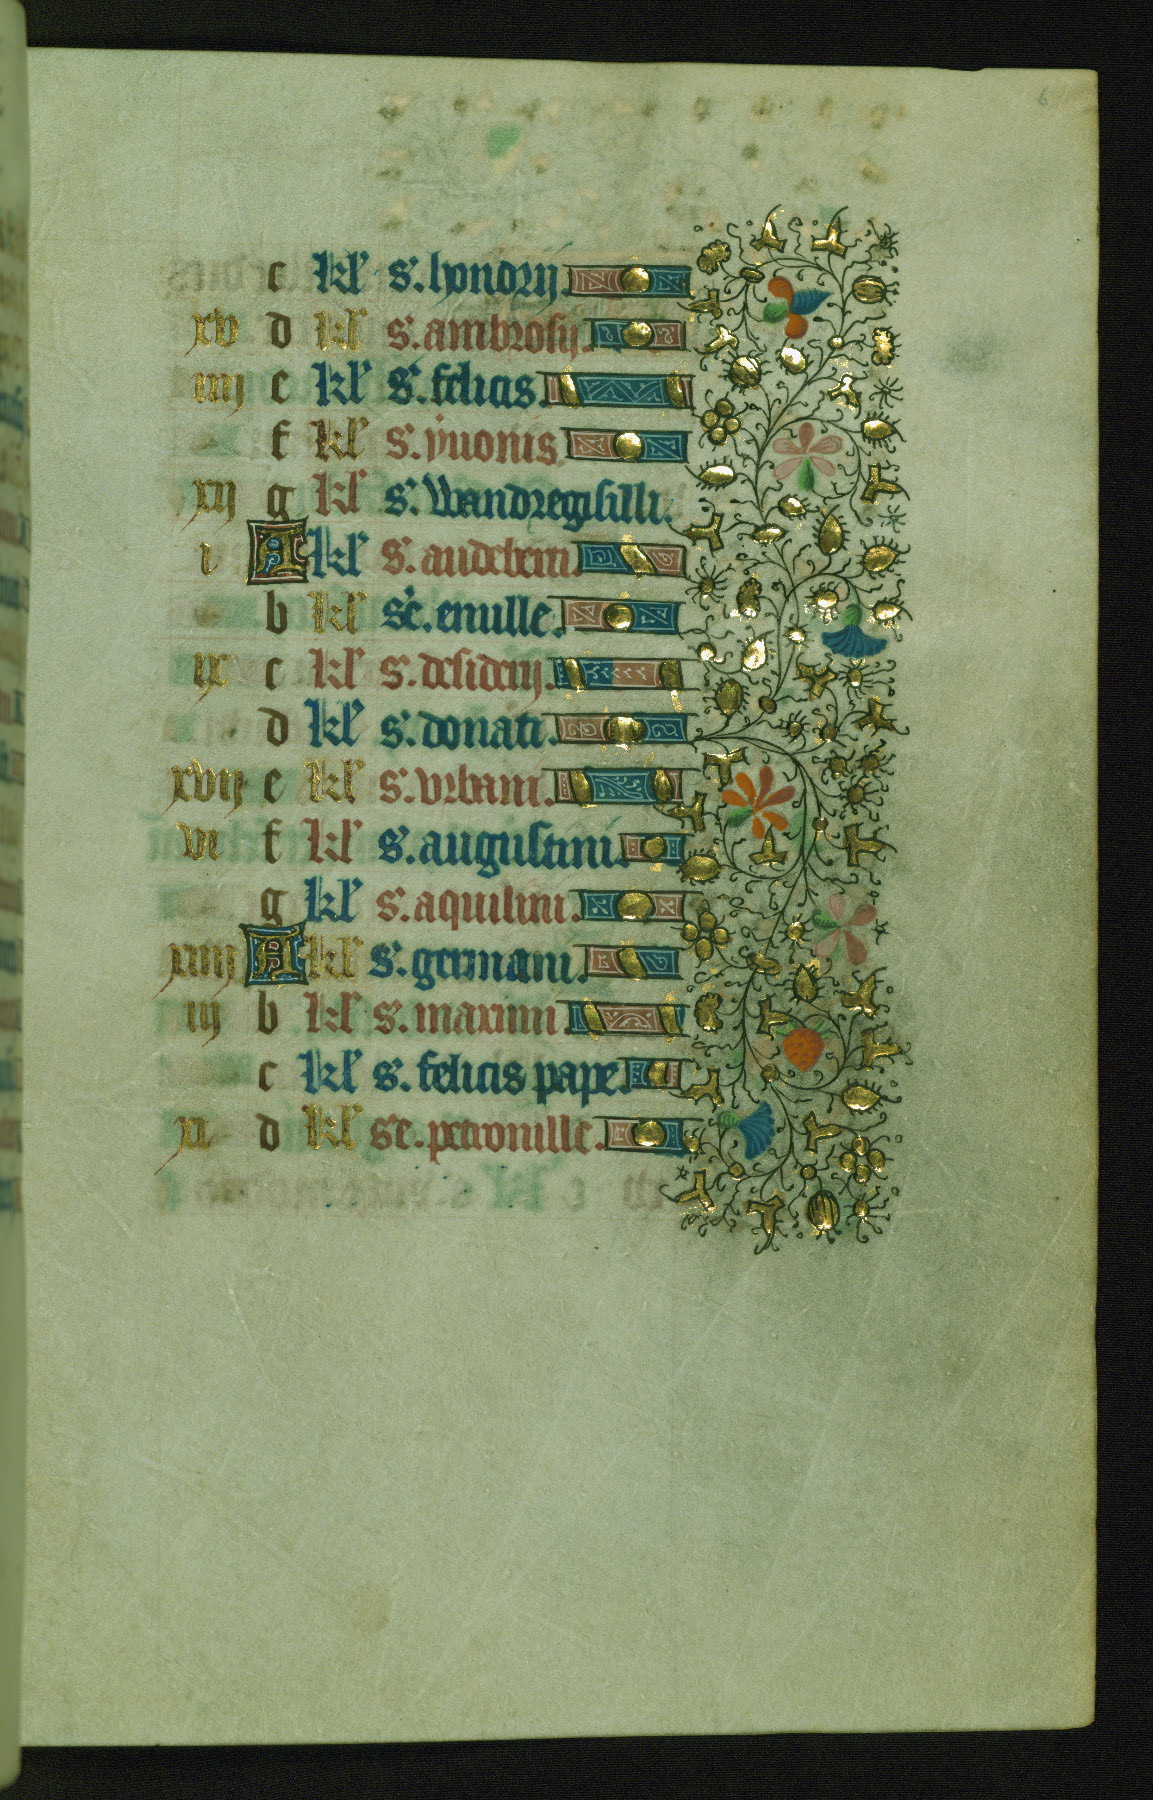 6
c kl' s. hondrii.
xv d kl' s. ambrosij.
iiij e kl' s. felicis.
f kl' s. yuonis.
xij g kl' s. Wandregisilli.
i A kl' s. audeberti.
b kl' sc̄. emille.
ix c kl' s. desiderij.
d kl' s. donati.
xvij e kl' s. vrbani.
vi f kl' s. augustini.
g kl' s. aquilini.
xiiij A kl' s. germani.
iij b kl' s. maximi
c kl' s. felicis pape.
xi d kl' sc̄. petronille.